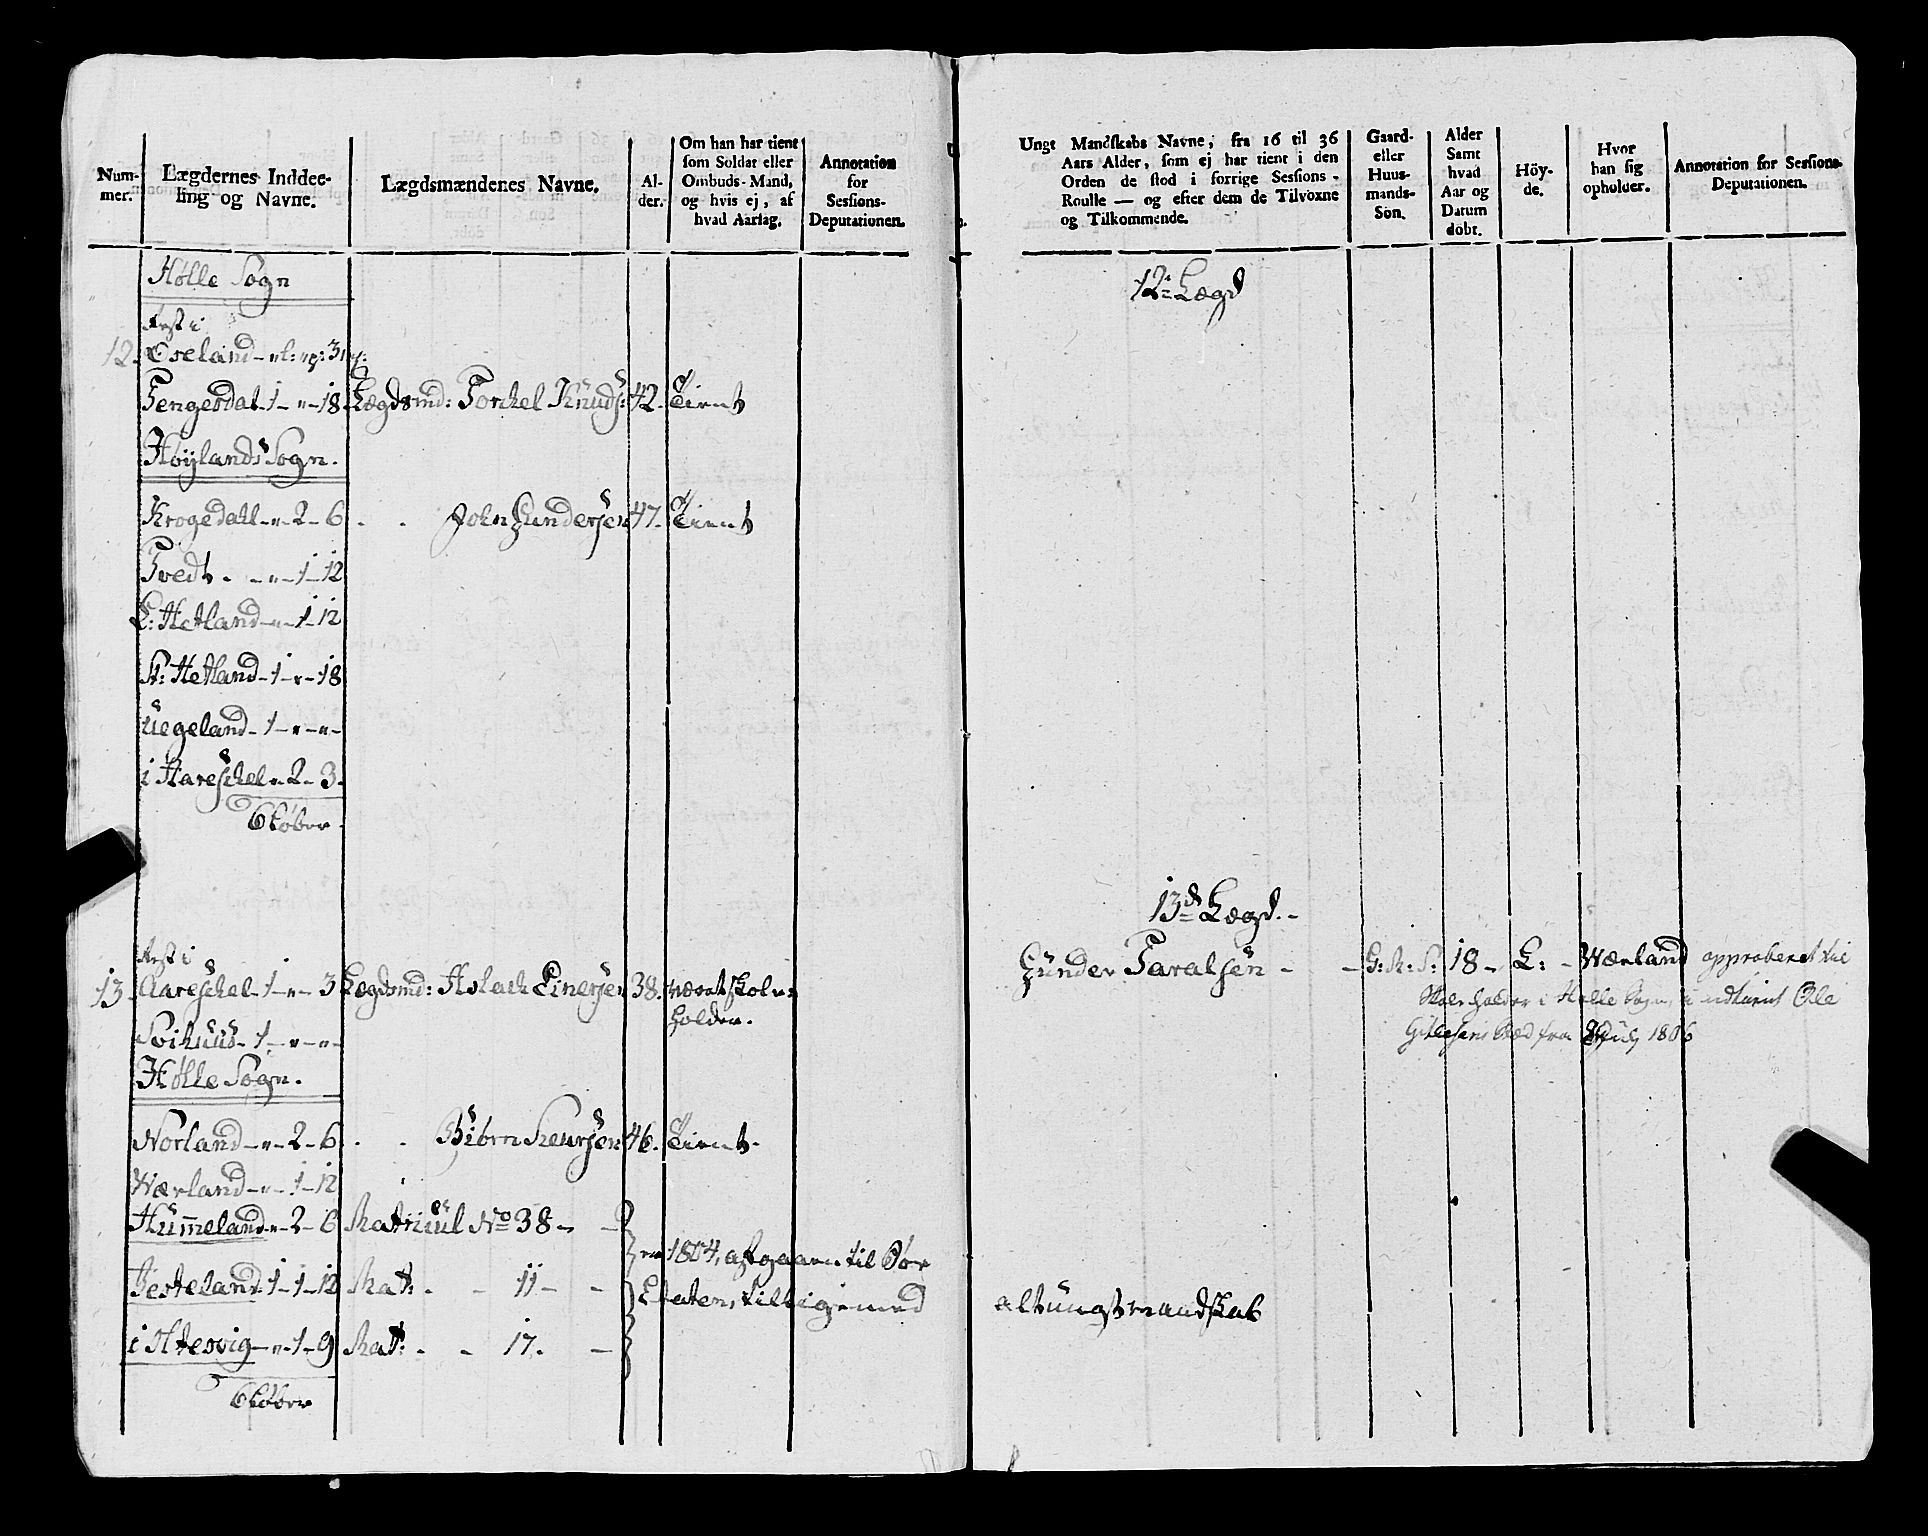 Num-
mer.
Lægdernes Inddee-
ling og Navne.
Lægdsmændenes Navne.
Al-
der.
Om han har tient
som Soldat eller
Ombuds-Mand,
og hvis ej, af
hvad Aarsag.
Annotation
for
Sessions-
Deputationen.
Hølle Sogn
Rest i
12. Oseland
Tengesdal 1 - " - 18 Lægdsmd: Torkel Knuds: 42. Tient
Höylands Sogn.
Krogedall - " - 2 - 6 . . John Gundersen 47. Tient
Tvedt . - " - 1 - 12
L: Hetland - " - 1 - 12
St: Hetland - 1 - " - 18
Uegeland - 1 - " - " -
i Hareschel - " - 2 - 3.
6 Løber
Rest i
13. Aareschel - 1 - " - 3 Lægdsmd: Aslach Einersen 38. været skole-
holder.
Svihuus - 1 - " - " -
Hølle Sogn.
Norland - " - 2 - 6 . . Biörn Siursen 46. Tient.
Wærland - " - 1 - 12
Hummeland - " - 2 - 6 Matricul No 38 -
er 1804, afgaaen til Søe
Jesteland 1 - 1 - 12 Mat: - - 11 - -
Etaten, tilligemed
i Htesvig - " - 1 - 9 Mat: - - 17. -
6 Løber
Ungt Mandskabs Navne, fra 16 til 36
Aars Alder, som ej har tient i den
Orden de stod i forrige Sessions-
Roulle — og efter dem de Tilvoxne
og Tilkommende.
Gaard-
eller
Huus-
mands-
Søn.
Alder
Samt
hvad
Aar og
Datum
döbt.
Höy-
de.
Hvor
han sig
opholder.
Annotation for Sessions-
Deputationen.
12te Lægd
13de Lægd. -
Gunder Taralsen - - G: M: S: 18 - L: - Wærland approberet til
Skoleholder i Holle Sogn, i udtient Ole
Gitlesens Sted fra July 1806
alt ungt mandskab